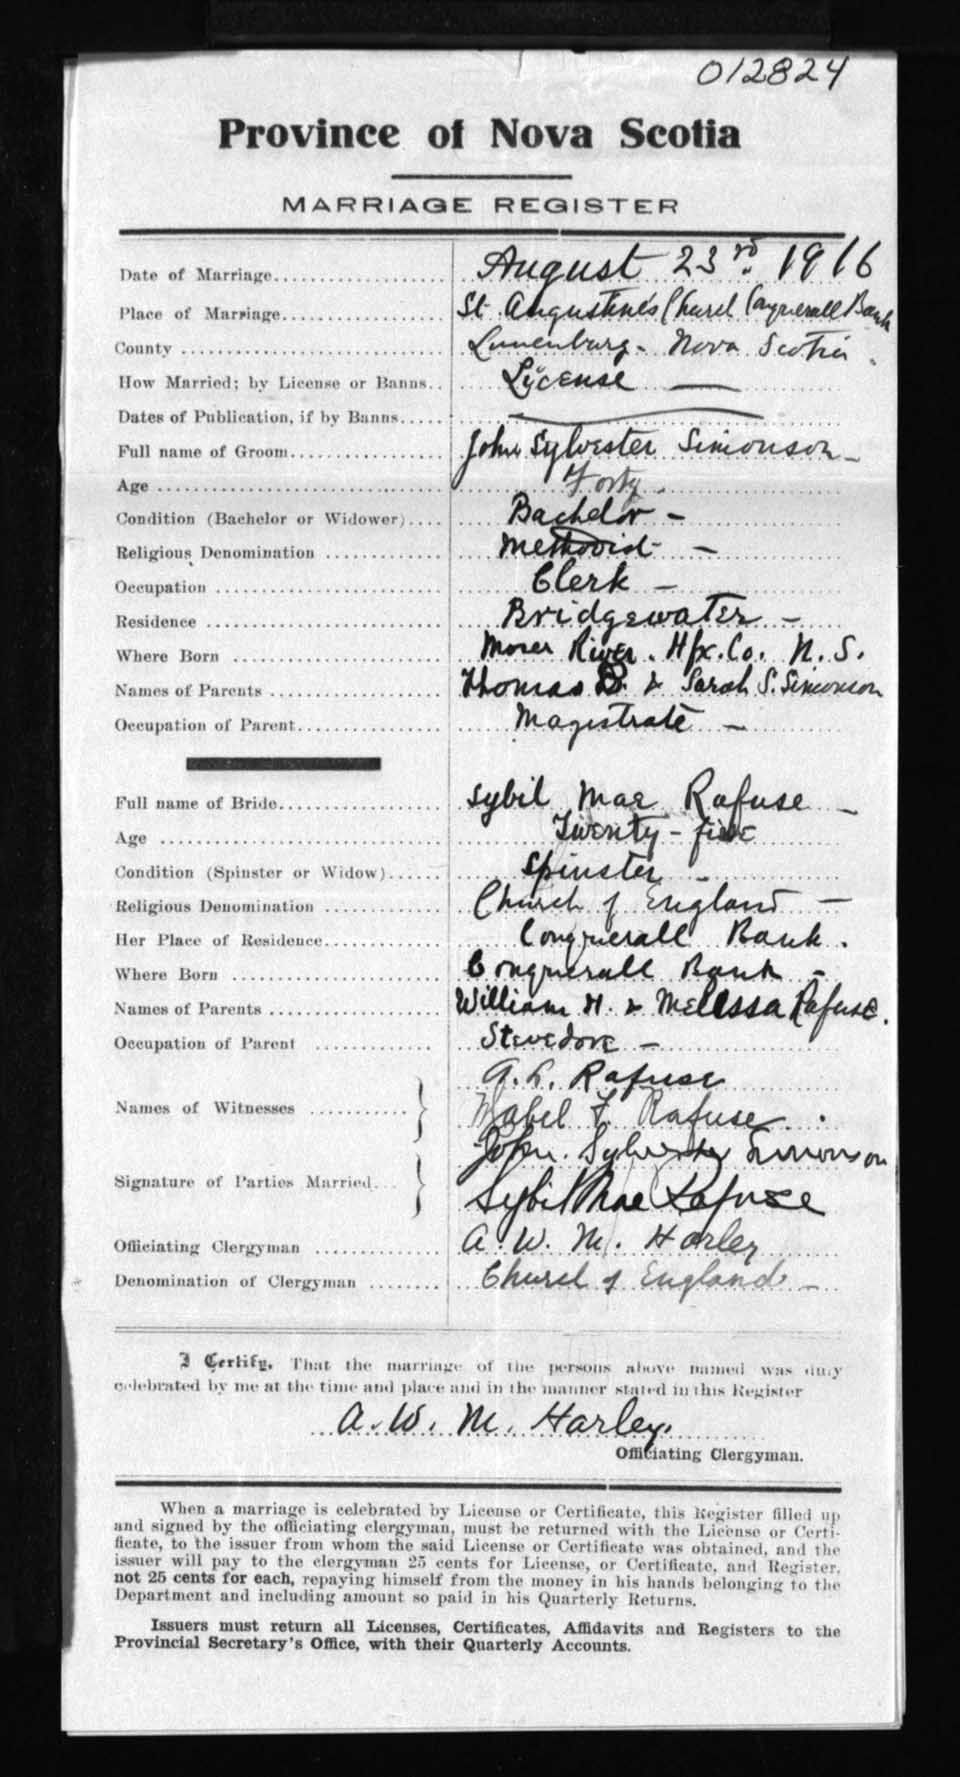 012824
Province of Nova Scotia
MARRIAGE REGISTER
Date of Marriage August 23rd. 1916
Place of Marriage St. Augustine's Church Conquerall Bank
County Lunenburg - Nova Scotia.
How Married; by License or Banns License —
Dates of Publication, if by Banns
Full name of Groom John Sylvester Simonson -
Age Forty.
Condition (Bachelor or Widower) Bachelor -
Religious Denomination Methodist -
Occupation Clerk -
Residence Bridgewater -
Where Born Moser River. Hfx. Co. N. S.
Names of Parents Thomas D. & Sarah S. Simonson
Occupation of Parent Magistrate -
Full name of Bride Sybil Mae Rafuse -
Age Twenty-five
Condition (Spinster or Widow) Spinster -
Religious Denomination Church of England -
Her Place of Residence Conquerall Bank.
Where Born Conquerall Bank -
Names of Parents William H. & Melissa Rafuse.
Occupation of Parent Stevedore -
A. L. Rafuse
Names of Witnesses Mabel F Rafuse.
John. Sylvester Simonson
Signature of Parties Married Sybil Mae Rafuse
Officiating Clergyman A. W. M. Harley
Denomination of Clergyman Church of England -
I Certify, That the marriage of the persons above named was duly
celebrated by me at the time and place and in the manner stated in this Register
A. W. M. Harley.
Officiating Clergyman.
When a marriage is celebrated by License or Certificate, this Register filled up
and signed by the officiating clergyman, must be returned with the License or Certi-
ficate, to the issuer from whom the said License or Certificate was obtained, and the
issuer will pay to the clergyman 25 cents for License, or Certificate, and Register,
not 25 cents for each, repaying himself from the money in his hands belonging to the
Department and including amount so paid in his Quarterly Returns.
Issuers must return all Licenses, Certificates, Affidavits and Registers to the
Provincial Secretary's Office, with their Quarterly Accounts.